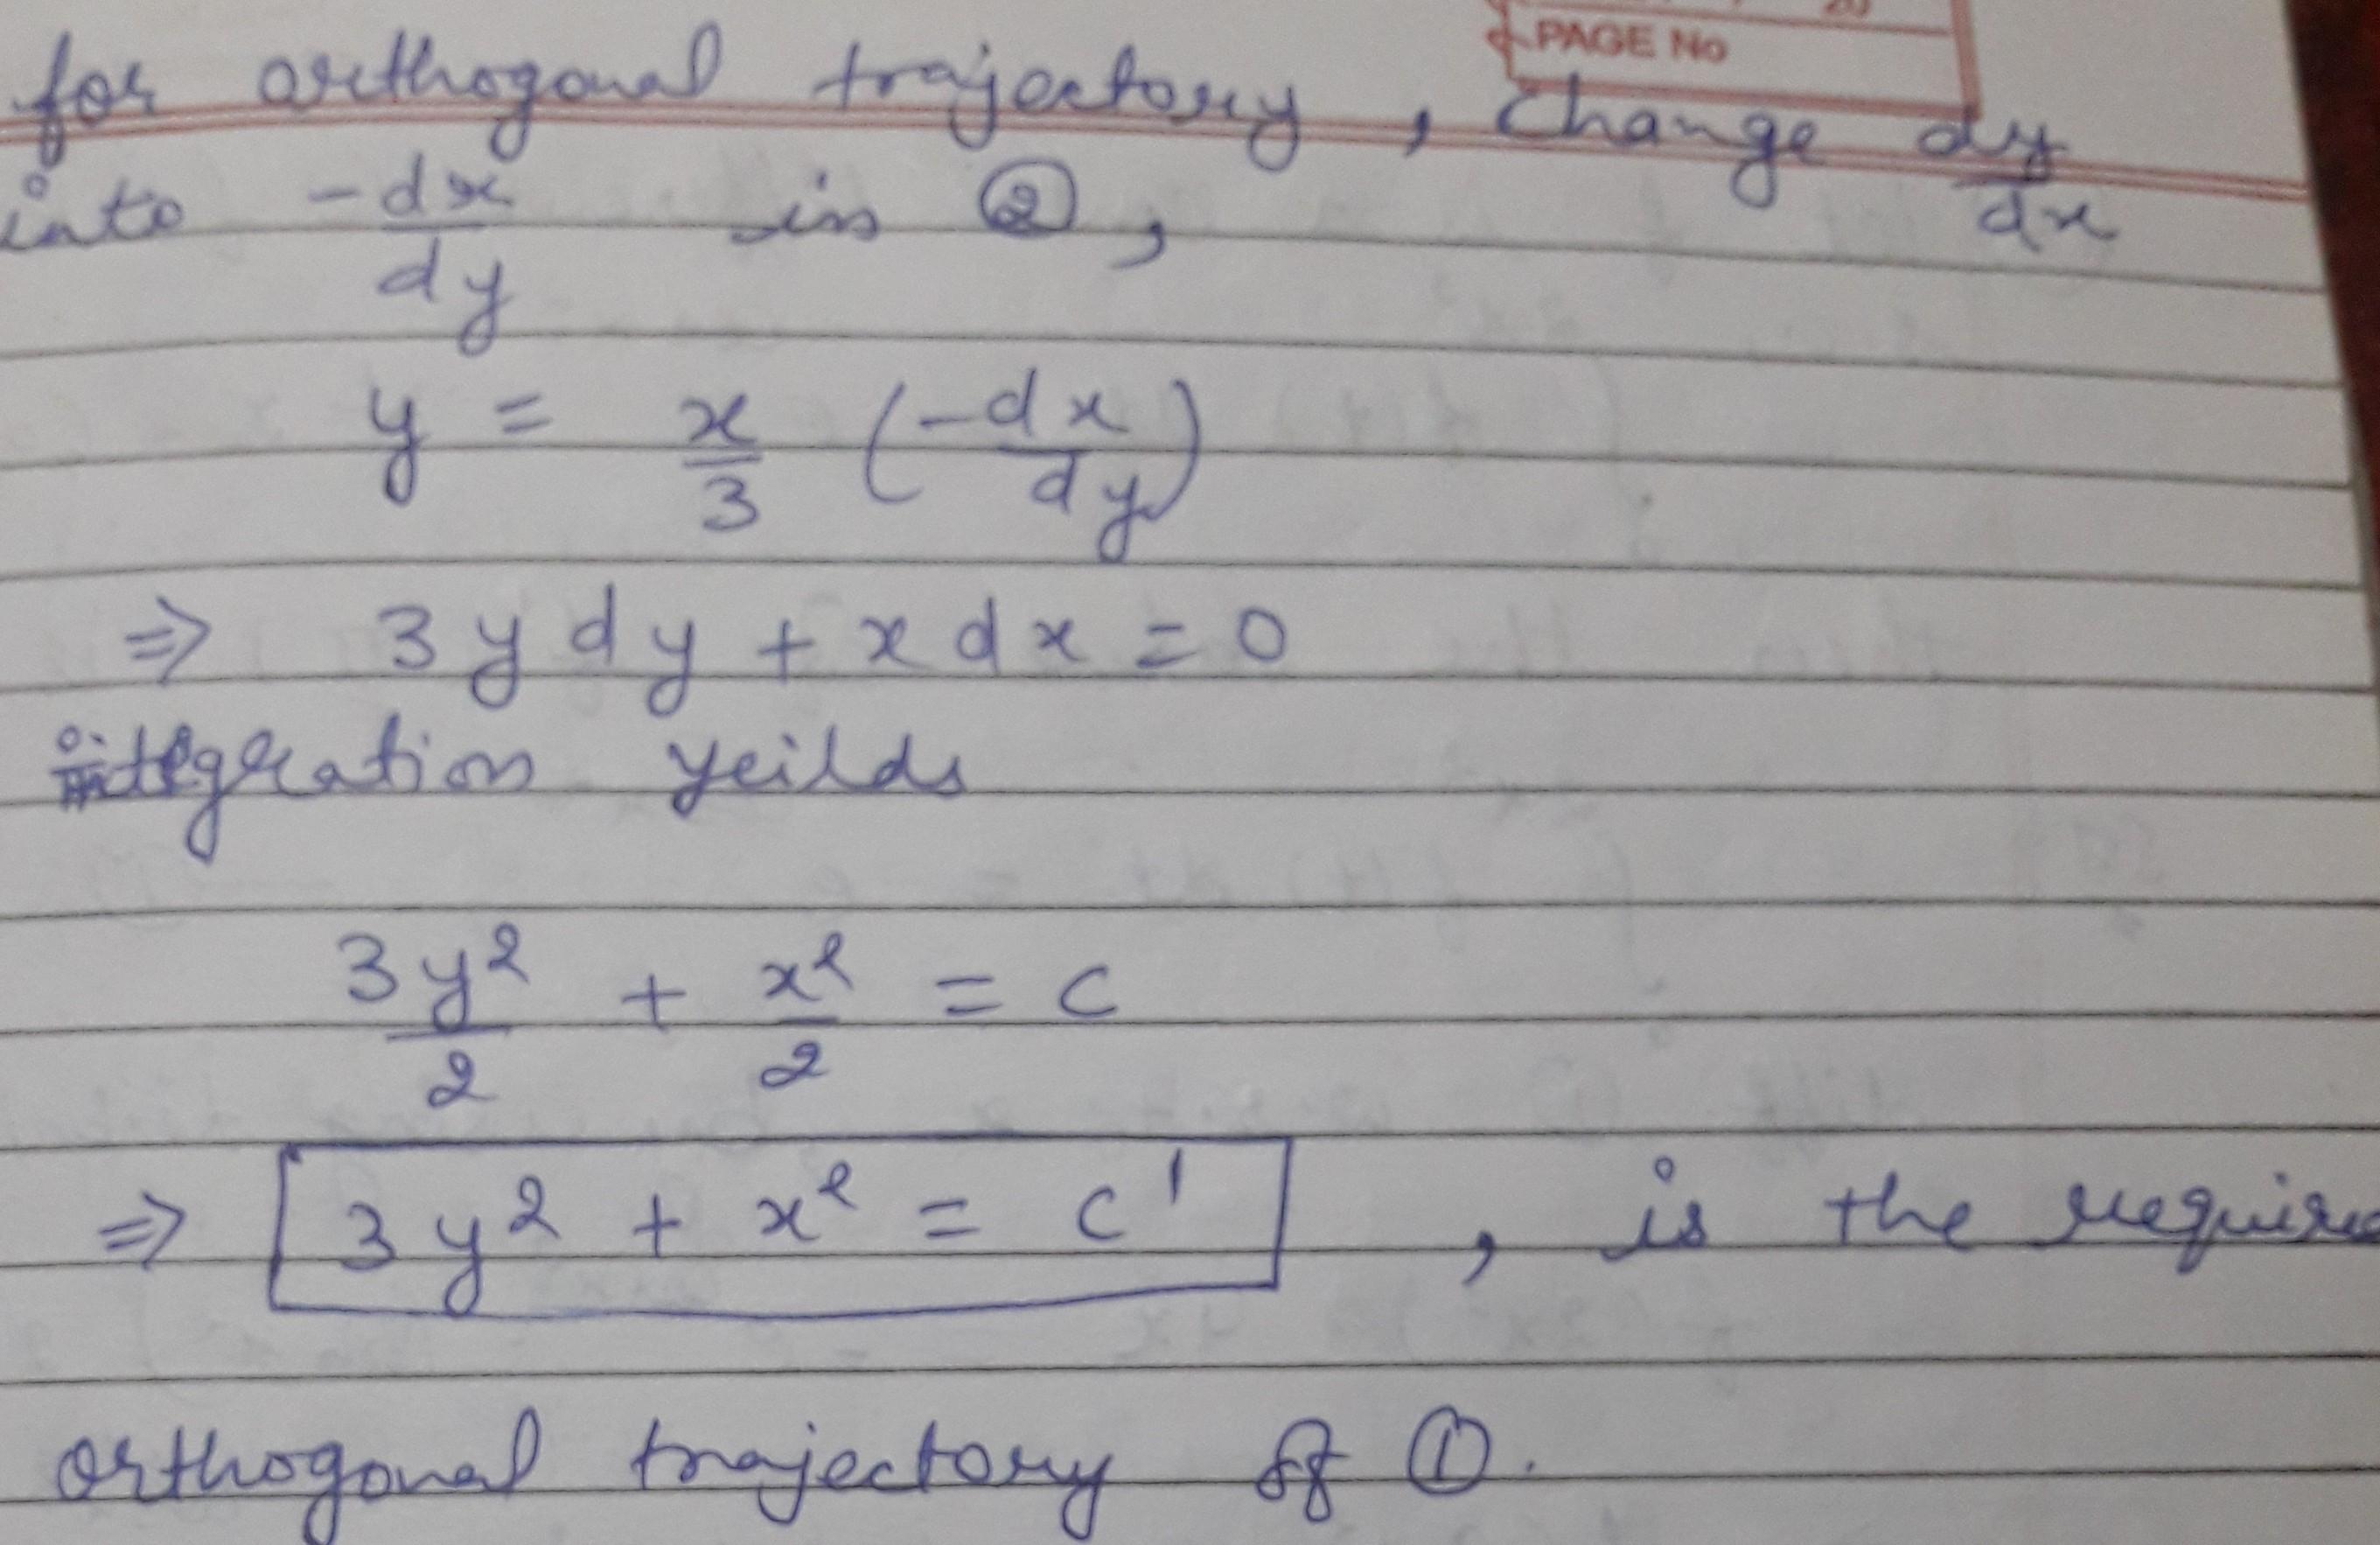 PAGE No
for orthogonal trajectory, change dy/dx
into -dx/dy in ②,
y = x/3 (-dx/dy)
⇒ 3y dy + x dx = 0
integration yeilds
3y²/2 + x²/2 = c
⇒ 3y² + x² = c', is the require
orthogonal trajectory of ①.